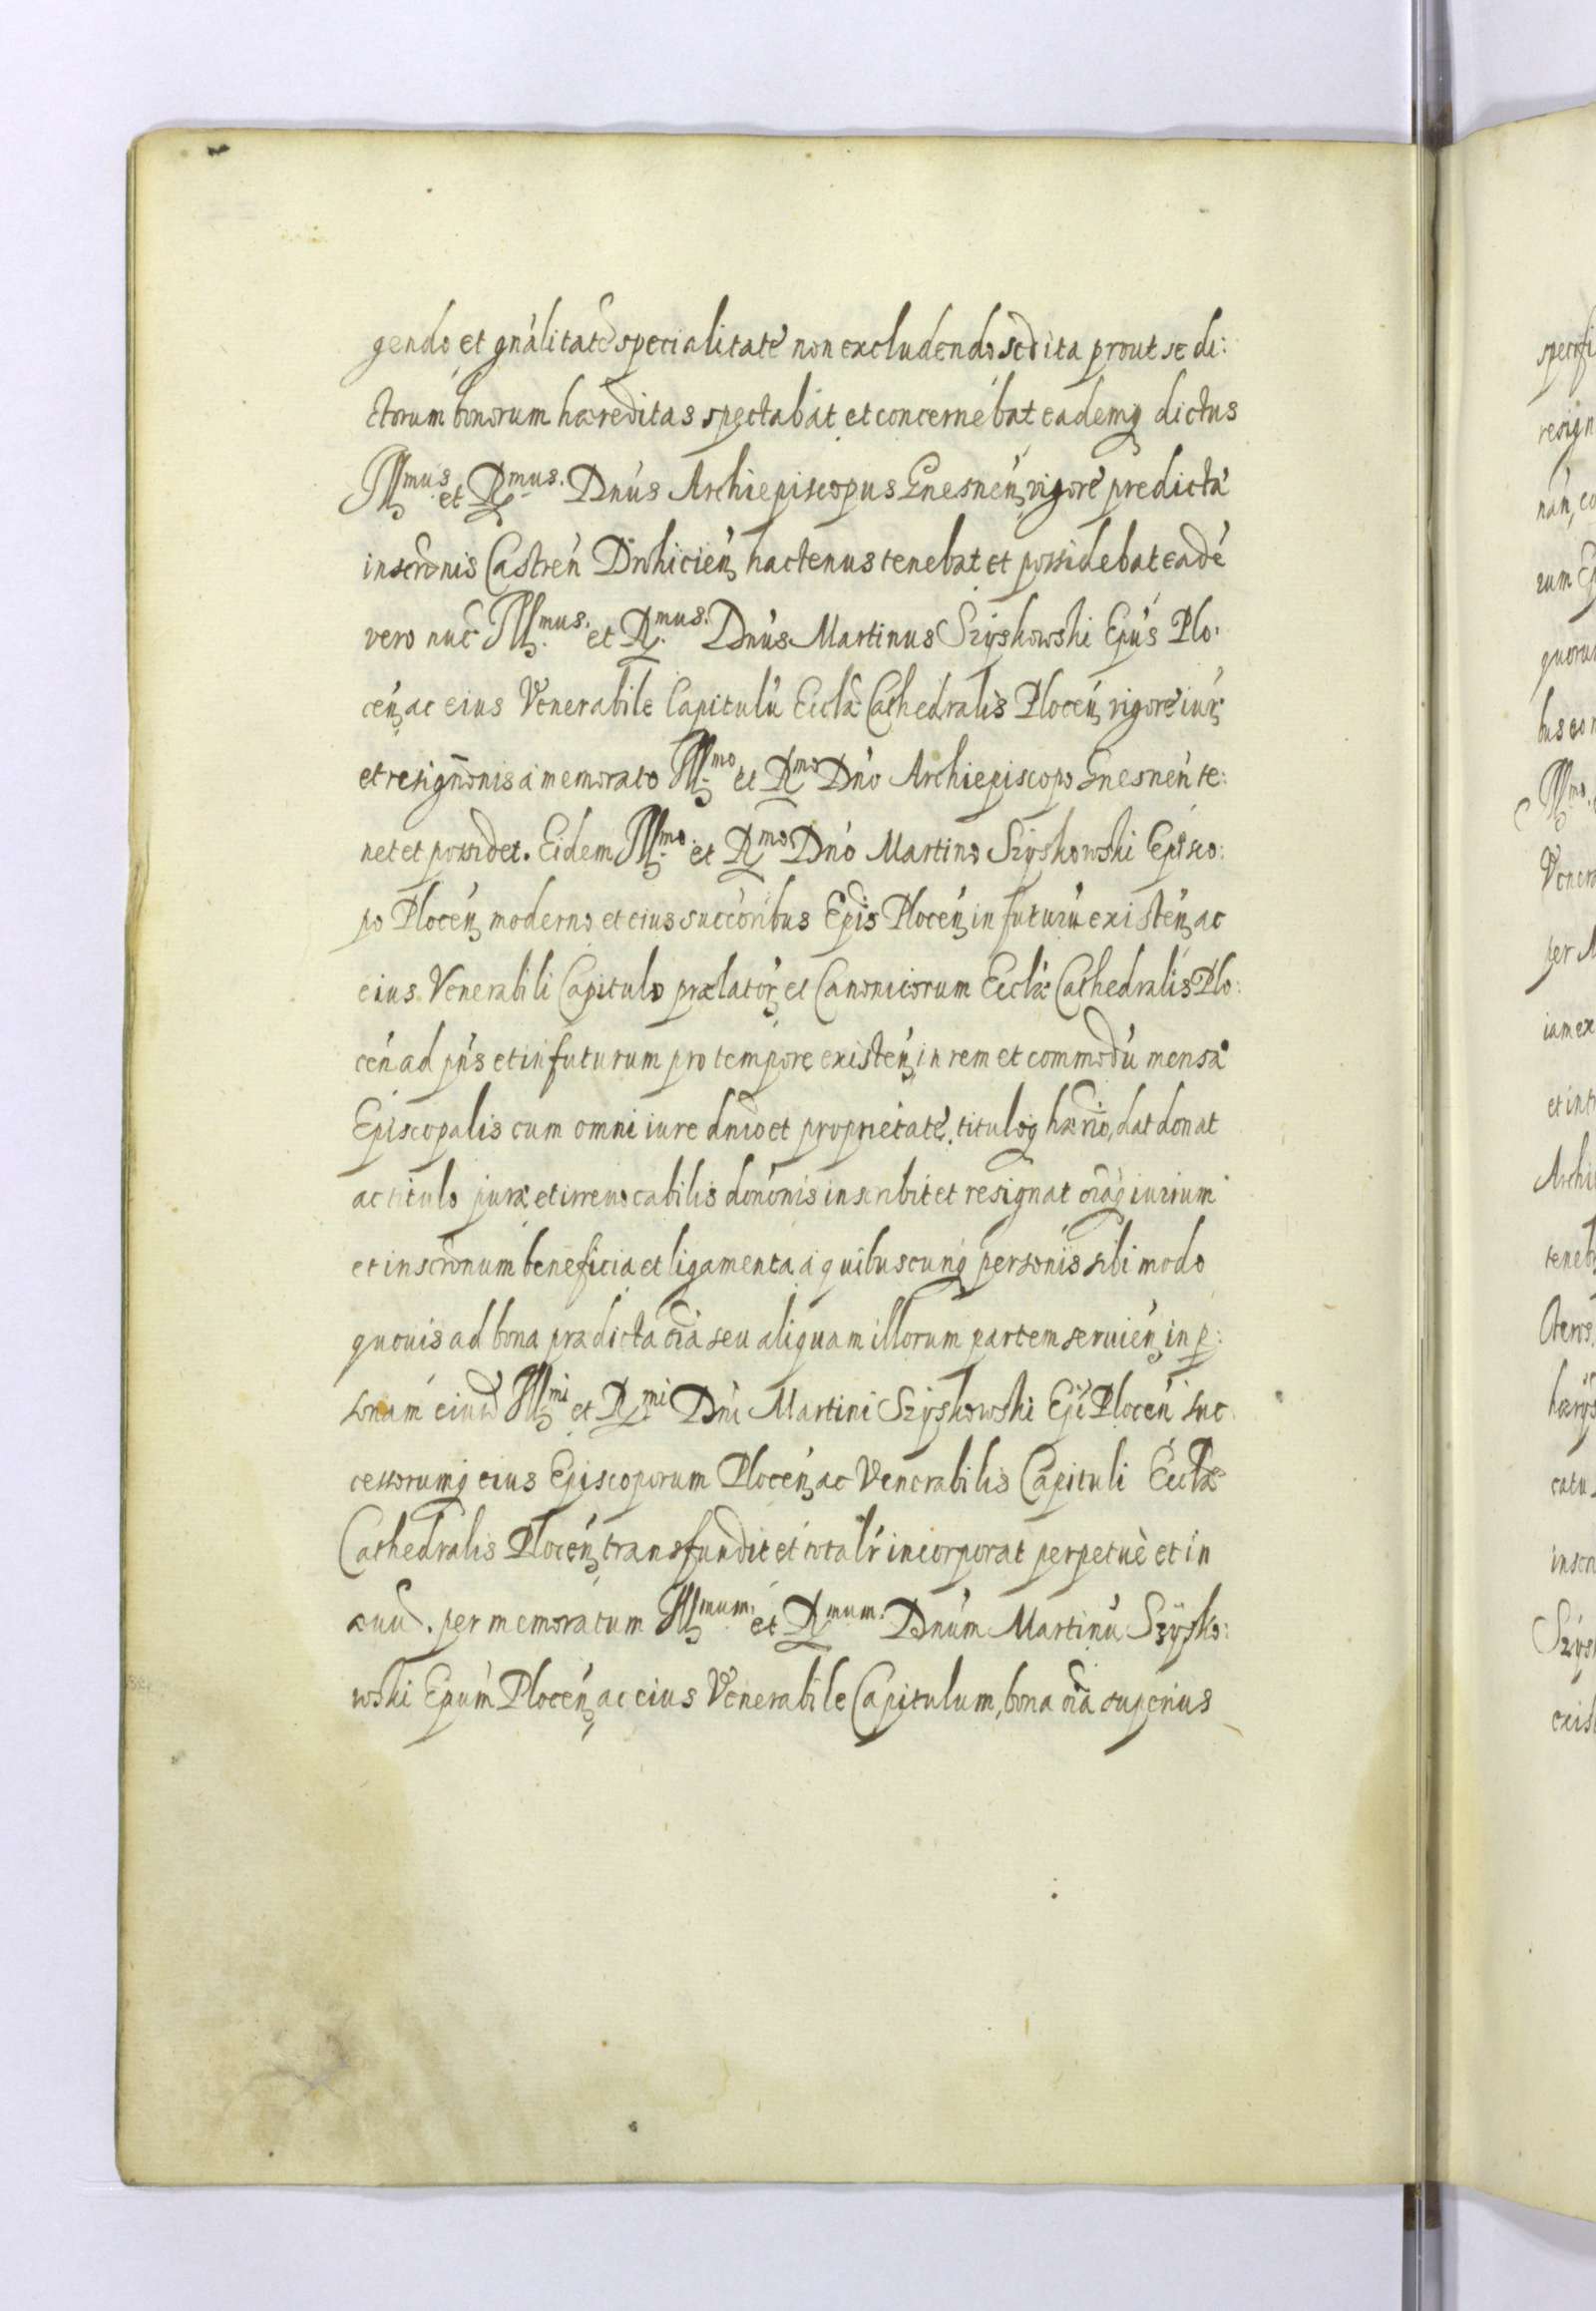 gendo et gnálitate specialitate non excludendo sed ita prout se di:
ctorum bonorum hæreditas spectabat et concernebat eademq dictus
Illmus. et Rmus. Dnús Archiepiscopus Gnesnén, vigore predictæ
inscrōnis Castrén Drohicién, hactenus tenebat et possidebat eadé
vero nuc Illmus. et Rmus. Dnús Martinus Szÿskowski Epús Plo:
cén, ac eius Venerabile Capitulú Ecclæ Cathedralis Plocén, vigore iur
et resignōnis á memorato Illmo et Rmo Dnó Archiepiscopo Gnesnén te:
net et possidet. Eidem Illmo. et Rmo Dnó Martino Szÿskowski Episco:
po Plocén, moderno et eius succóribus Epis Plocén, in futurú existén, ac
eius Venerabili Capitulo prælatór, et Canonicorum Ecclæ Cathedralis Plo:
cén ad pńs et in futurum pro tempore existén, in rem et commodú mensæ
Episcopalis cum omni iure dnio et proprietate, titulóq hærio, dat donat
ac titulo puræ et irreuocabilis donónis inscribit et resignat oiaq iurium
et inscrōnum beneficia et ligamenta á quibuscunq personis sibi modo
quouis ad bona prædicta oia seu aliquam illorum partem seruién, in p:
sonam eiusd Illmi et Rmi Dni Martini Szÿskowski Epi Plocén suc
cessorumq eius Episcoporum Plocén, ac Venerabilis Capituli Ecclæ
Cathedralis Plocén, transfundit et totalr incorporat perpetuè et in
æuu. per memoratum Illmum. et Rmum. Dnúm Martinú Szÿsko:
wski Epúm Plocén, ac eius Venerabile Capitulum, bona oia superius